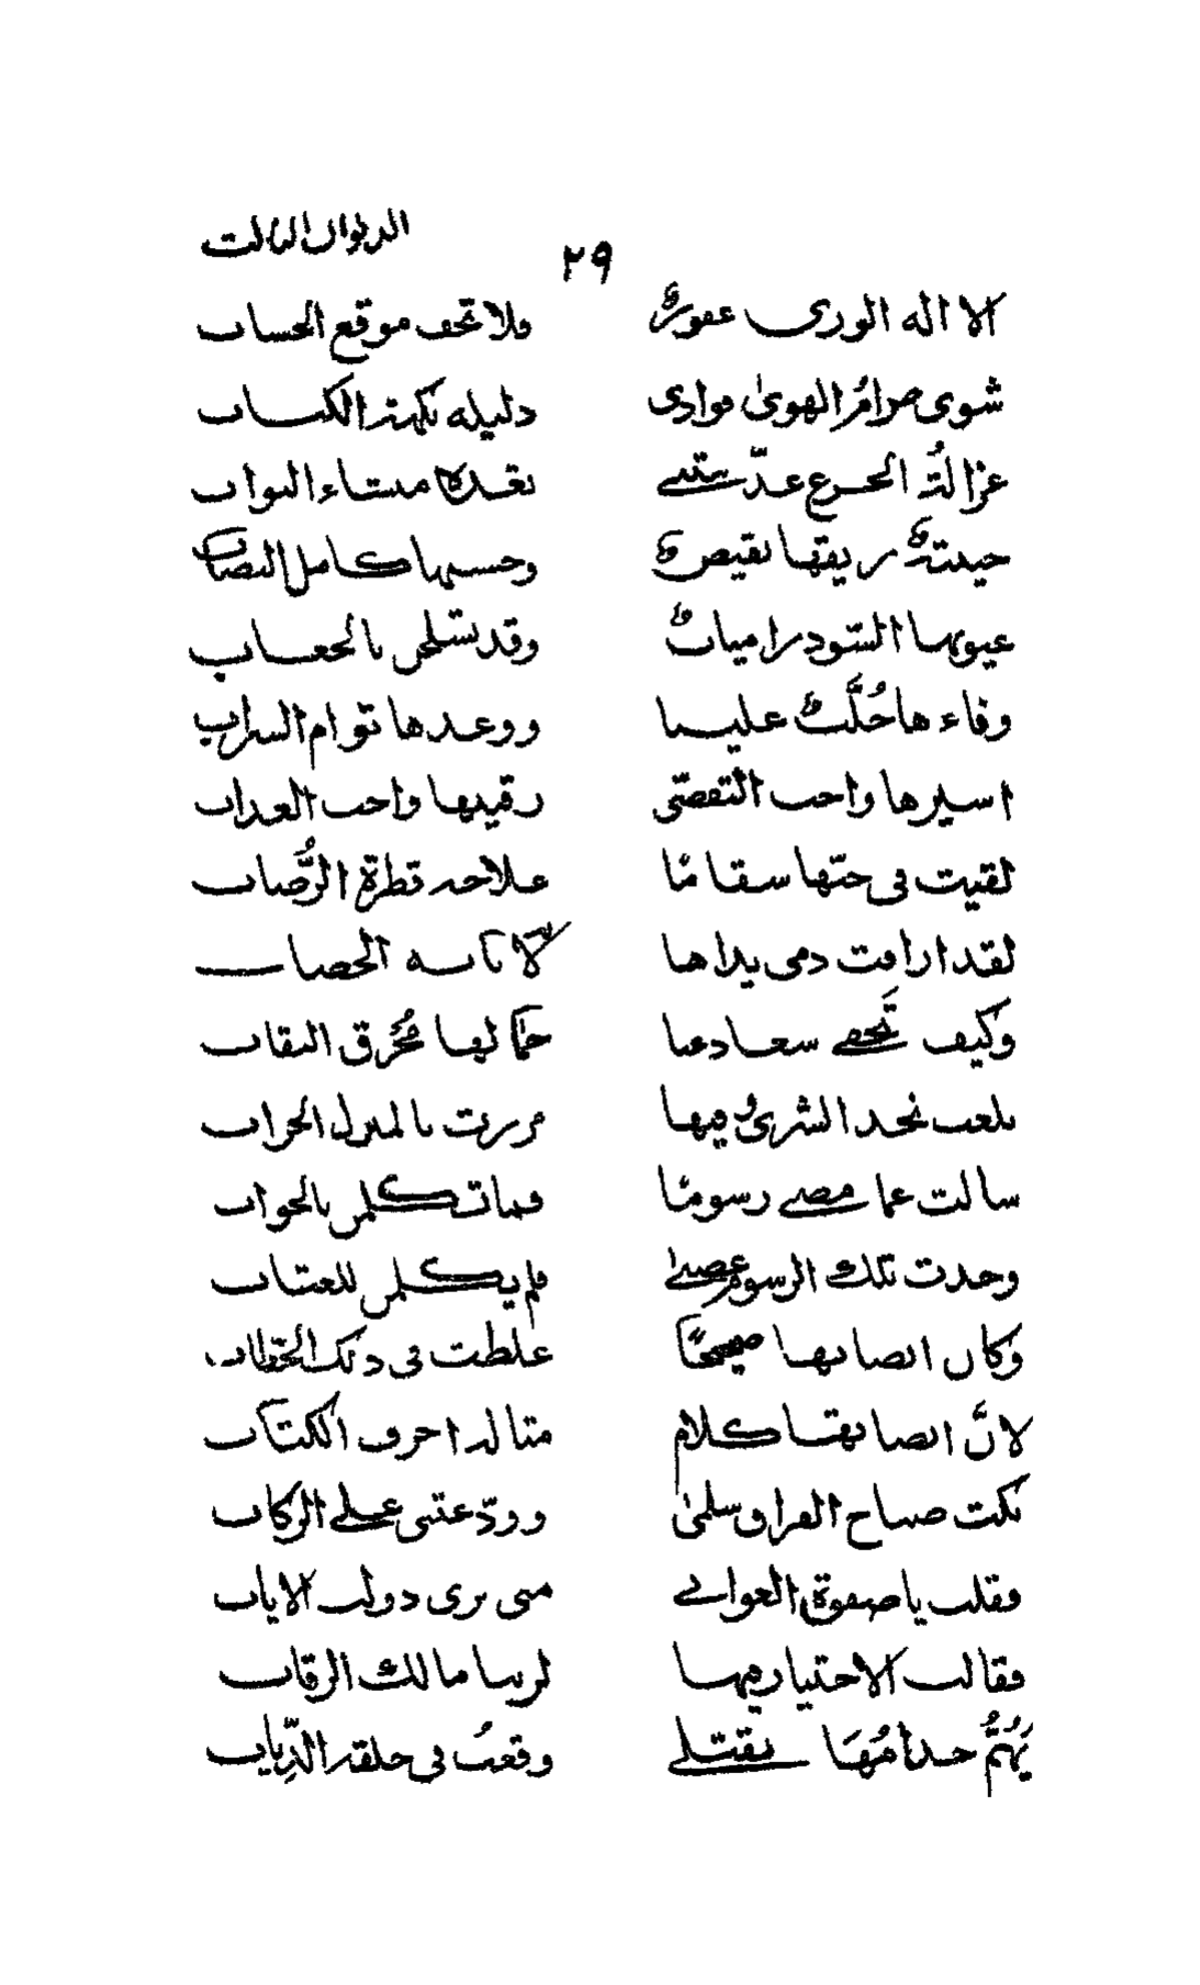 الديوان الثالث
٢٩
الا اله الورى غفورٌ فلا تخف موقع الحساب
شوى ضرامُ الهوىٰ فوادى دليله نكهة الكباب
غزالةُ الجزع عذّبتنى بعده ميتاء الثواب
ريقها نقيصٌ وحسنها كامل النصاب
عيونها السّود راميات وقد بالجعاب
وفاءها علينا ووعدها توام السراب
اسيرها واجب التفصّى رقيبها واجب العذاب
لقيت فى حبّها سقامًا علاجه قطرة الرُّضاب
لقد اراقت دمى يداها الخضاب
وكيف تَخفى سعاد عنا جمالها مُخرق النقاب
بلعب نجد الشرىٰ فيها مررت بالمنزل الخراب
سالت عما مضى رسومًا فما تكلمن بالجواب
وجدت تلك الرسوم غضبىٰ فلم يكلمن للعتاب
وكان انصابها صحيحًا غلطت فى ذلك الخطاب
لانَّ انصابها كلام مثاله احرف الكتاب
بكت صباح الفراق سلمىٰ وودّعتنى على الركاب
فقلت يا صفوة الغوانى متى نرى دولت الاياب
فقالت الاختيار فيها لربنا مالك الرقاب
يَهُمُّ خدامُهَا بقتلى وقعتُ فى حلقة الذِّياب